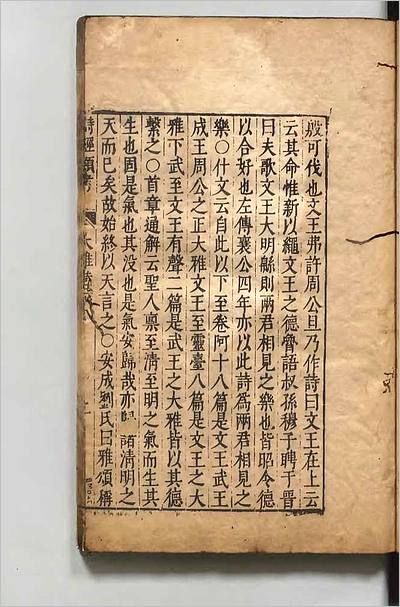 殷可伐也文王弗許周公旦乃作詩曰文王在上云
云其命惟新以繩文王之德魯語叔孫穆子聘于晉
曰夫歌文王大明緜則兩君相見之樂也皆昭令德
以合好也左傳襄公四年亦以此詩爲兩君相見之
樂〇什文云自此以下至卷阿十八篇是文王武王
成王周公之正大雅文王至靈臺八篇是文王之大
雅下武至文王有聲二篇是武王之大雅皆以其德
繫之〇首章通解云聖人禀至清至明之氣而生其
生也固是氣也其没也是氣安歸哉亦歸諸清明之
天而已矣故始終以天言之〇安成劉氏曰雅頌稱
詩經類考
大雅